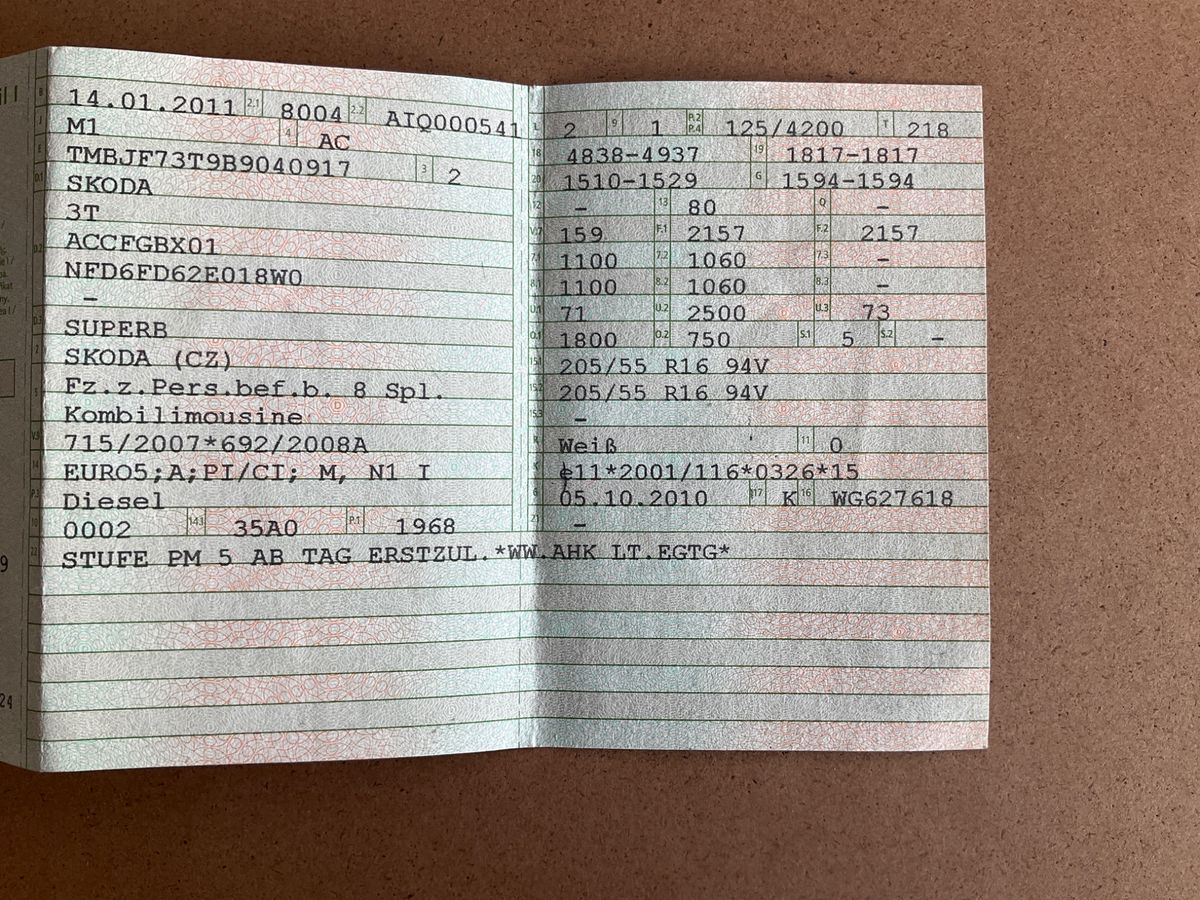 B 14.01.2011 2.1 8004 2.2 AIQ000541
J M1 4 AC
E TMBJF73T9B9040917 3 2
D.1 SKODA
3T
D.2 ACCFGBX01
NFD6FD62E018W0
–
D.3 SUPERB
2 SKODA (CZ)
5 Fz.z.Pers.bef.b. 8 Spl.
Kombilimousine
V.9 715/2007*692/2008A
14 EURO5;A;PI/CI; M, N1 I
P.3 Diesel
10 0002 14.1 35A0 P.1 1968
22 STUFE PM 5 AB TAG ERSTZUL.*WW.AHK LT.EGTG*
L 2 9 1 P.2 P.4 125/4200 T 218
18 4838-4937 19 1817-1817
20 1510-1529 G 1594-1594
12 – 13 80 Q –
V.7 159 F.1 2157 F.2 2157
7.1 1100 7.2 1060 7.3 –
8.1 1100 8.2 1060 8.3 –
U.1 71 U.2 2500 U.3 73
O.1 1800 O.2 750 S.1 5 S.2 –
15.1 205/55 R16 94V
15.2 205/55 R16 94V
15.3 –
R Weiß 11 0
K e11*2001/116*0326*15
6 05.10.2010 17 K 16 WG627618
21 –